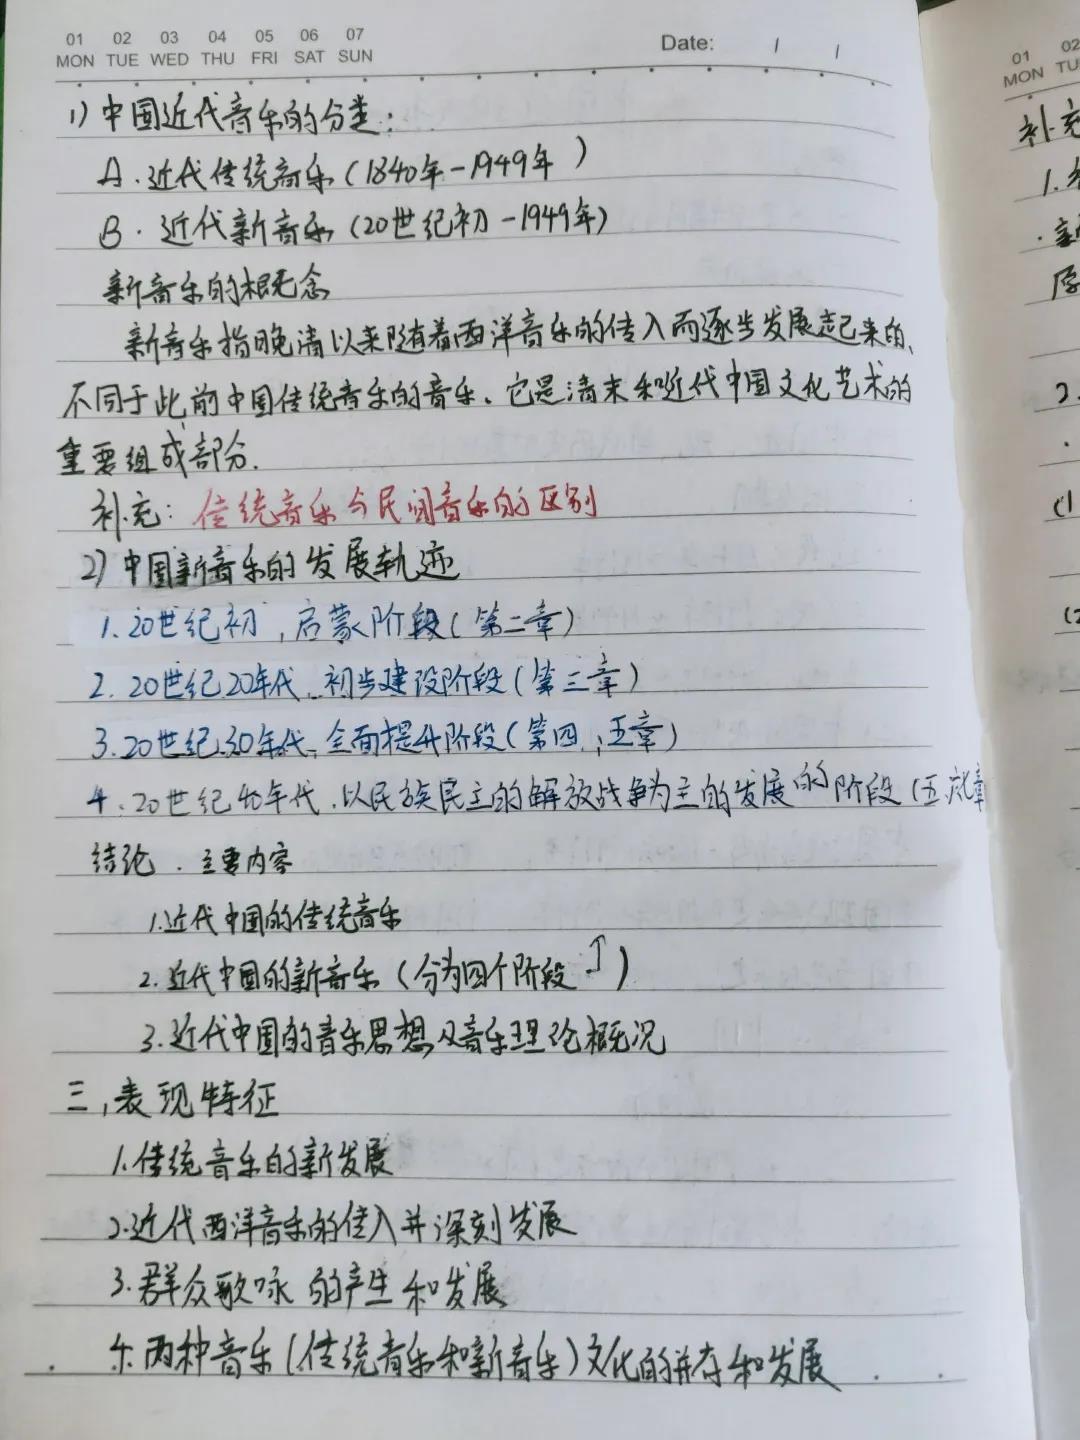 01 02 03 04 05 06 07
MON TUE WED THU FRI SAT SUN
Date: / /
1) 中国近代音乐的分类:
A. 近代传统音乐(1840年-1949年)
B. 近代新音乐(20世纪初-1949年)
新音乐的概念
新音乐指晚清以来随着西洋音乐的传入而逐步发展起来的、
不同于此前中国传统音乐的音乐。它是清末和近代中国文化艺术的
重要组成部分.
补充: 传统音乐与民间音乐的区别
2) 中国新音乐的发展轨迹
1. 20世纪初,启蒙阶段(第二章)
2. 20世纪20年代、初步建设阶段(第三章)
3. 20世纪30年代、全面提升阶段(第四、五章)
4. 20世纪40年代.以民族民主的解放战争为主的发展的阶段(五六章
结论.主要内容
1.近代中国的传统音乐
2.近代中国的新音乐(分为四个阶段↑)
3.近代中国的音乐思想及音乐理论概况
三,表现特征
1.传统音乐的新发展
2.近代西洋音乐的传入并深刻发展
3.群众歌咏的产生和发展
4.两种音乐(传统音乐和新音乐)文化的并存和发展
01 02
MON TU
补充
1.
2.
(1
(2